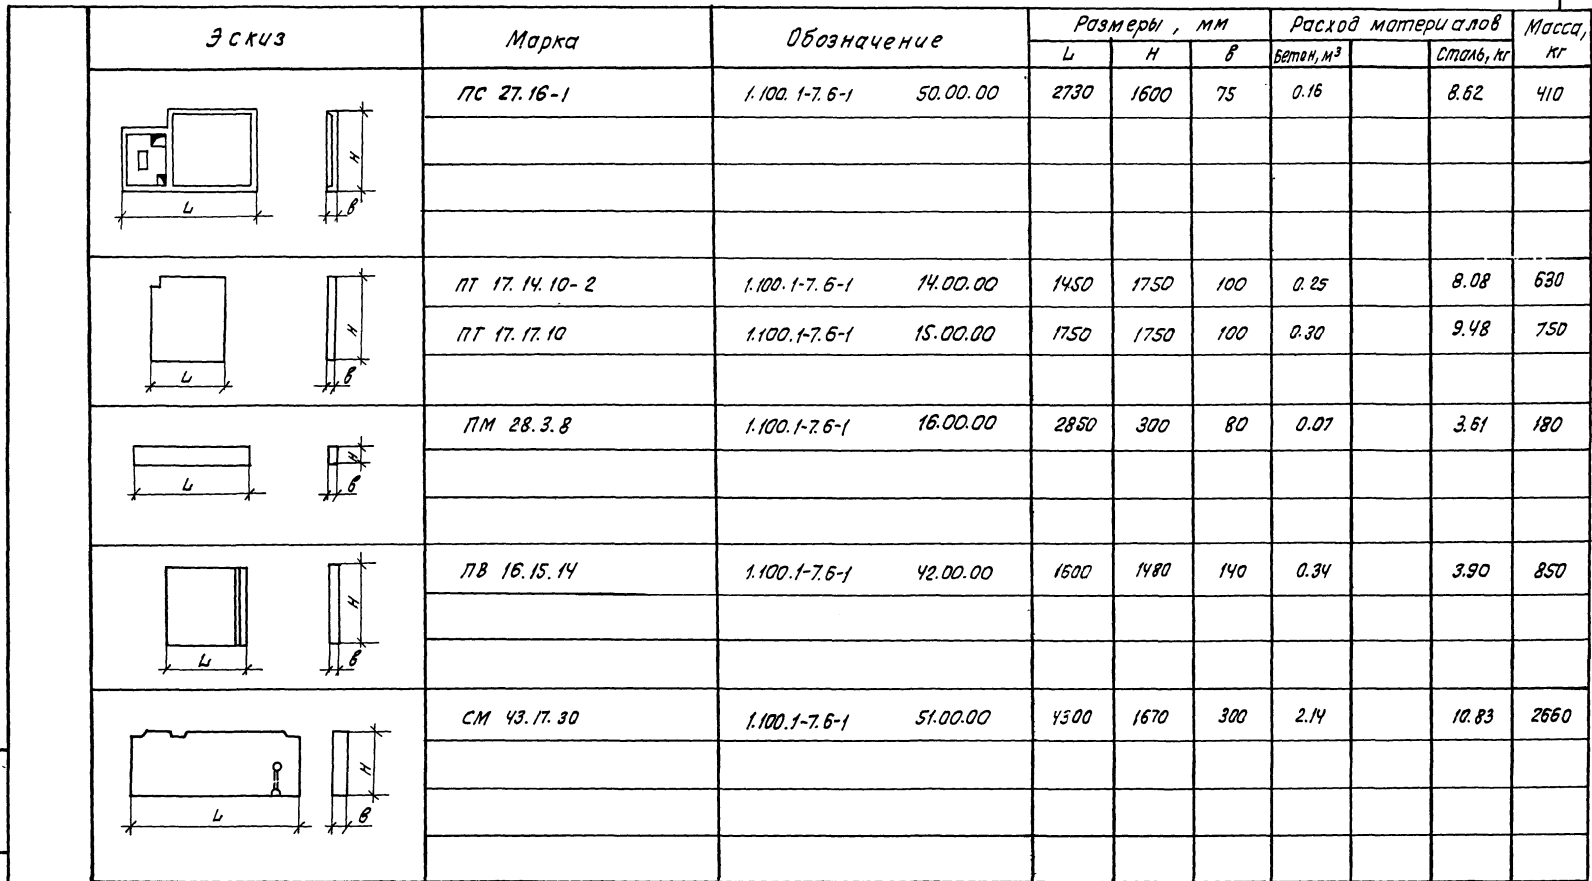 Эскиз Марка Обозначение Размеры, мм Расход материалов Масса, кг
L H В Бетон, м³ Сталь, кг
ПС 27.16-1 1.100.1-7.6-1 50.00.00 2730 1600 75 0.16 8.62 410
H
L В
ПТ 17.14.10-2 1.100.1-7.6-1 14.00.00 1450 1750 100 0.25 8.08 630
ПТ 17.17.10 1.100.1-7.6-1 15.00.00 1750 1750 100 0.30 9.48 750
H
L В
ПМ 28.3.8 1.100.1-7.6-1 16.00.00 2850 300 80 0.07 3.61 180
H
L В
ПВ 16.15.14 1.100.1-7.6-1 42.00.00 1600 1480 140 0.34 3.90 850
H
L В
СМ 43.17.30 1.100.1-7.6-1 51.00.00 4300 1670 300 2.14 10.83 2660
H
L В